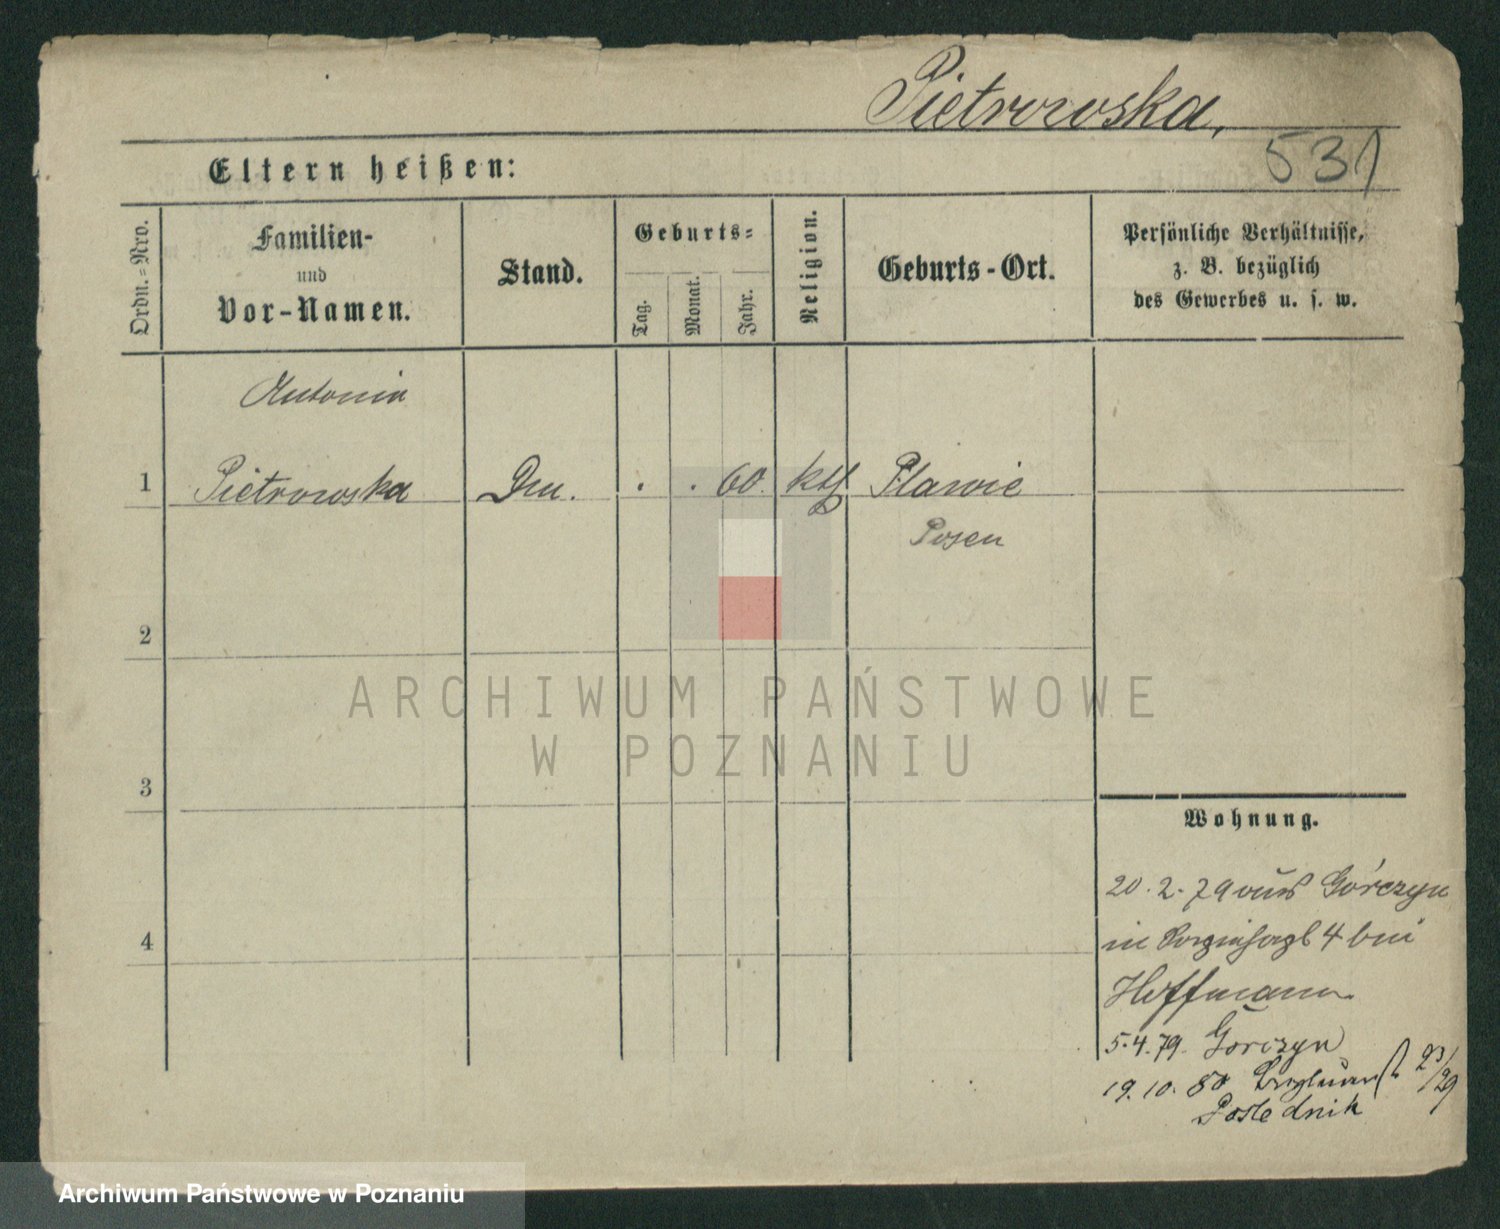 Pietrowska,
531
Eltern heißen:
Ordn.=Nro.
Familien-
und
Vor-Namen.
Stand.
Geburts=
Tag.
Monat.
Jahr.
Religion.
Geburts-Ort.
Persönliche Verhältnisse,
z. B. bezüglich
des Gewerbes u. s. w.
Antonia
1 Pietrowska . . 60. kth Plawie
Posen
2
3
4
ARCHIWUM PAŃSTWOWE
W POZNANIU
Wohnung.
20.2.79 aus Górczyn
in 4 bei
Hoffmann.
5.4.79. Gorczyn
19.10.80 23/29
Poslednik
Archiwum Państwowe w Poznaniu